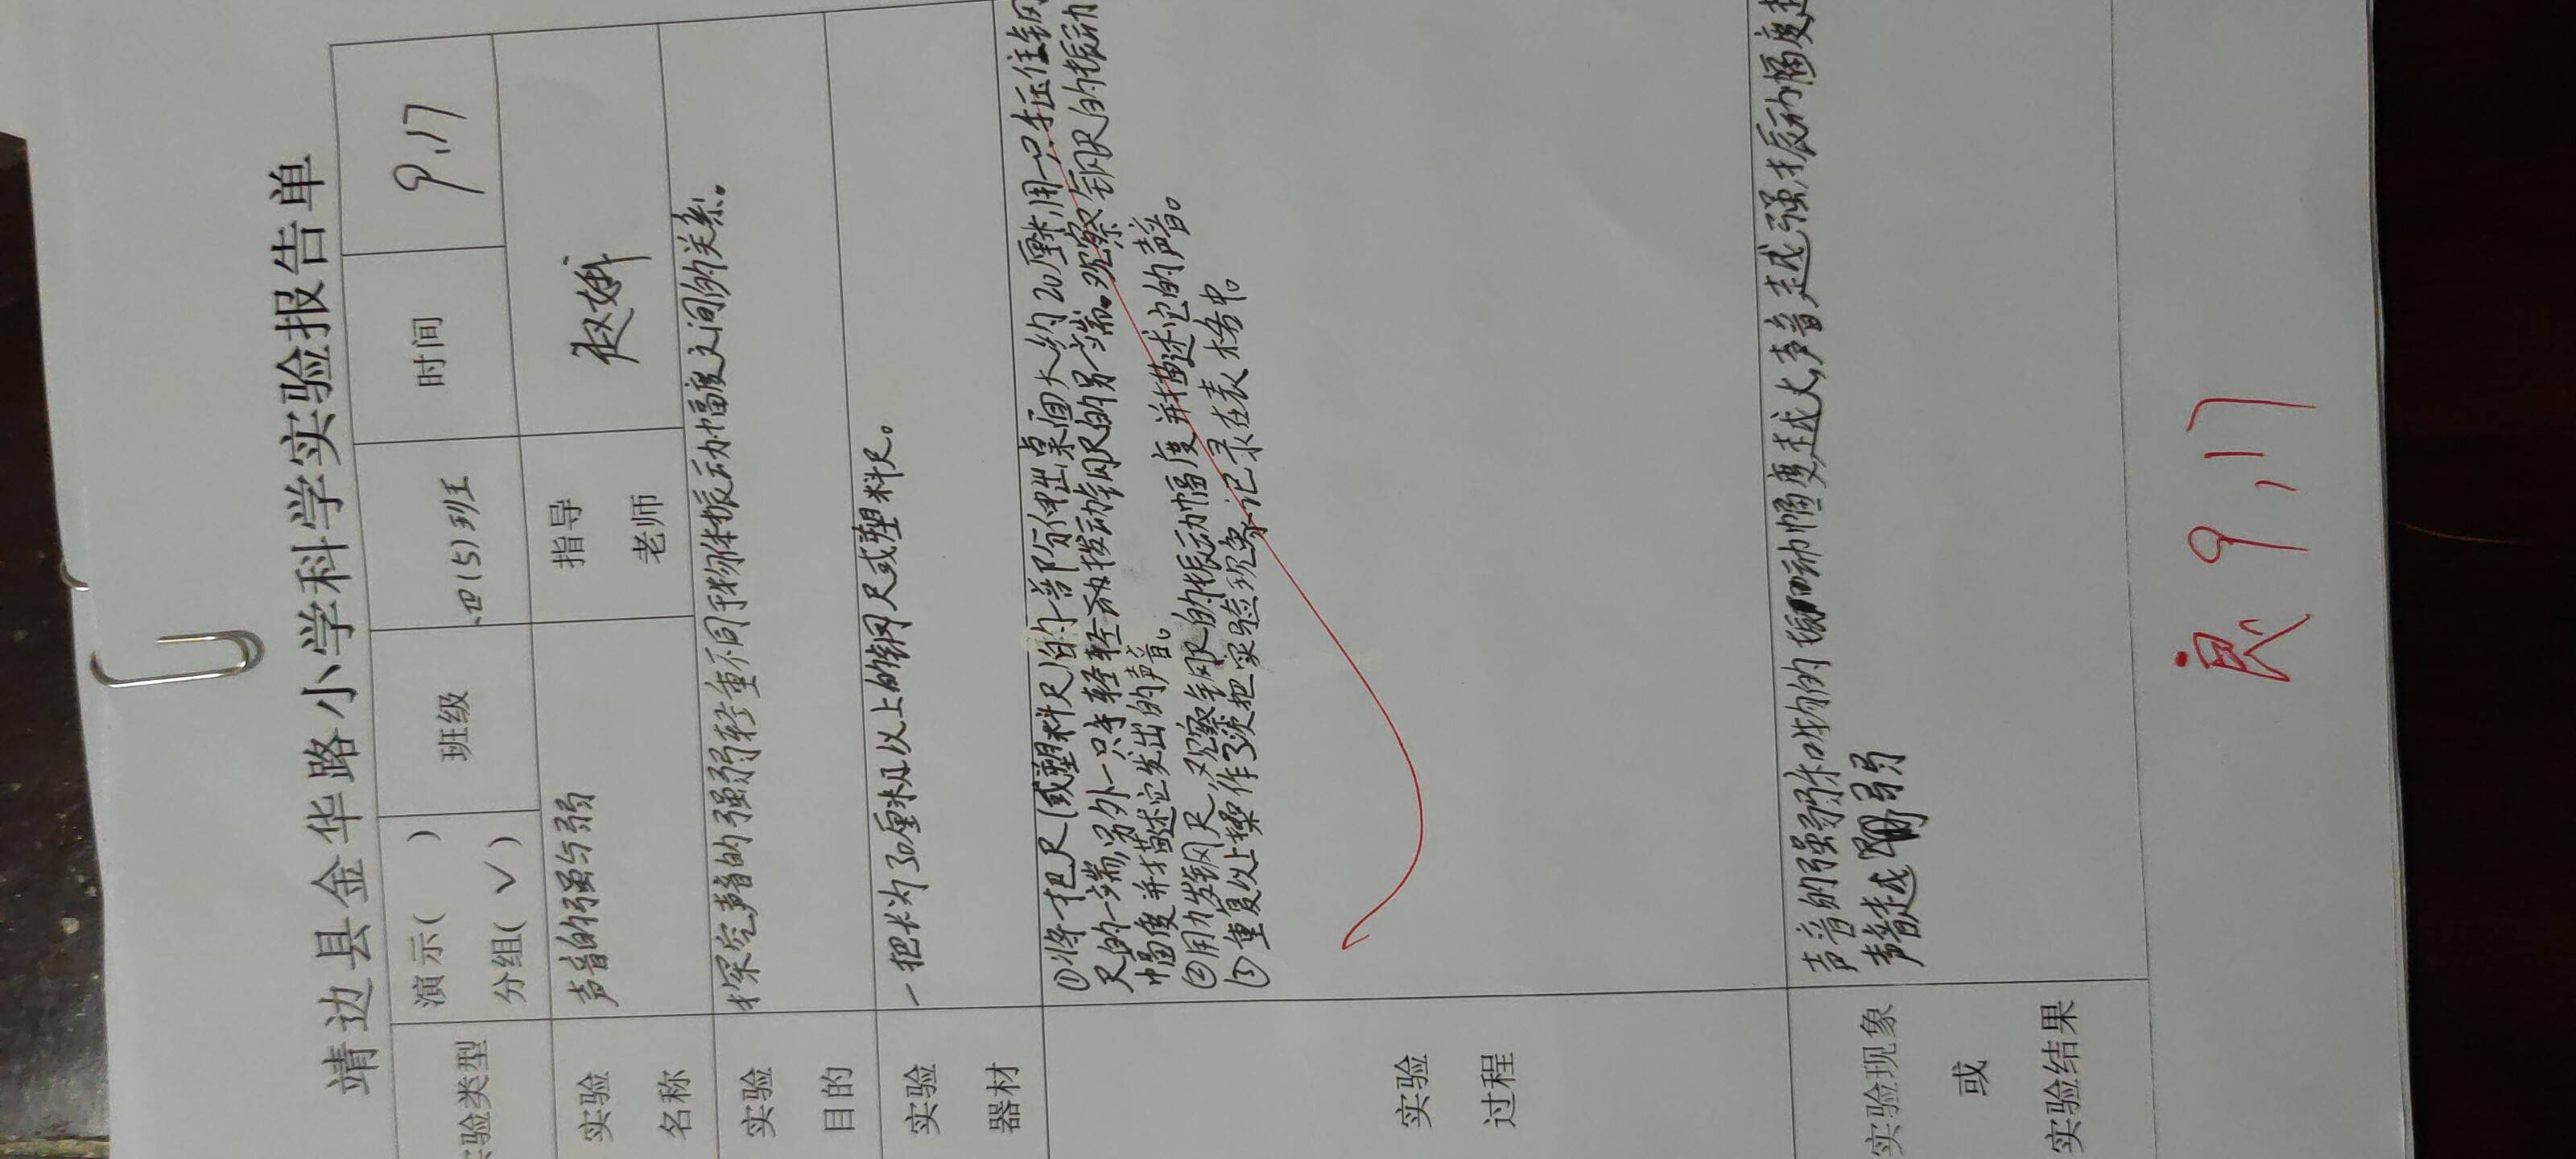 靖边县金华路小学科学实验报告单
验类型 演示( ) 分组( √ ) 班级 四(5)班 时间 9.17
实验名称 声音的强与弱 指导老师 赵
实验目的 探究声音的强弱轻重不同于物体振动幅度之间的关系。
实验器材 一把长为30厘米及以上的钢尺或塑料尺。
实验过程
①将一把尺(或塑料尺)的一部分伸出桌面大约20厘米,用一只手压住钢
尺的一端,另外一只手轻轻拨动钢尺的另一端。观察钢尺的振动
幅度并描述它发出的声音。
②用力拨钢尺,观察钢尺的振动幅度并描述它的声音。
③重复以上操作3次把实验现象记录在表格中。
实验现象或实验结果
声音的强弱和物的振动幅度越大,声音越强,振动幅度越
声音越弱
良 9.17